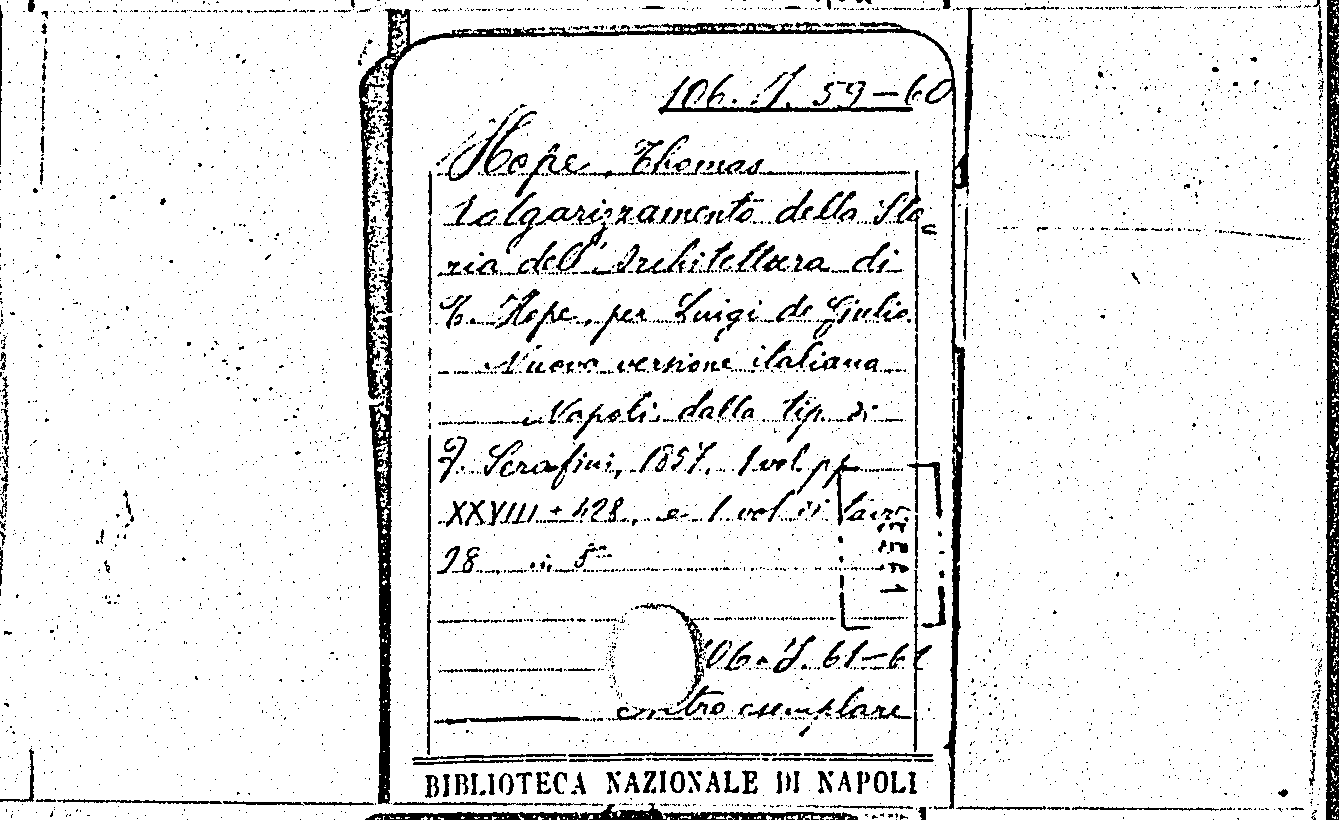 106. J. 59-60
Hope, Thomas
Volgarizzamento della Sto
ria dell'Architettura di
T. Hope, per Luigi de Giulio.
Nuova versione italiana
Napoli, dalla tip. di
F. Serafini, 1857, 1 vol pp
XXVIII + 428, e 1 vol di tavv.
98 in 8°
106. J. 61-62
altro esemplare
BIBLIOTECA NAZIONALE DI NAPOLI